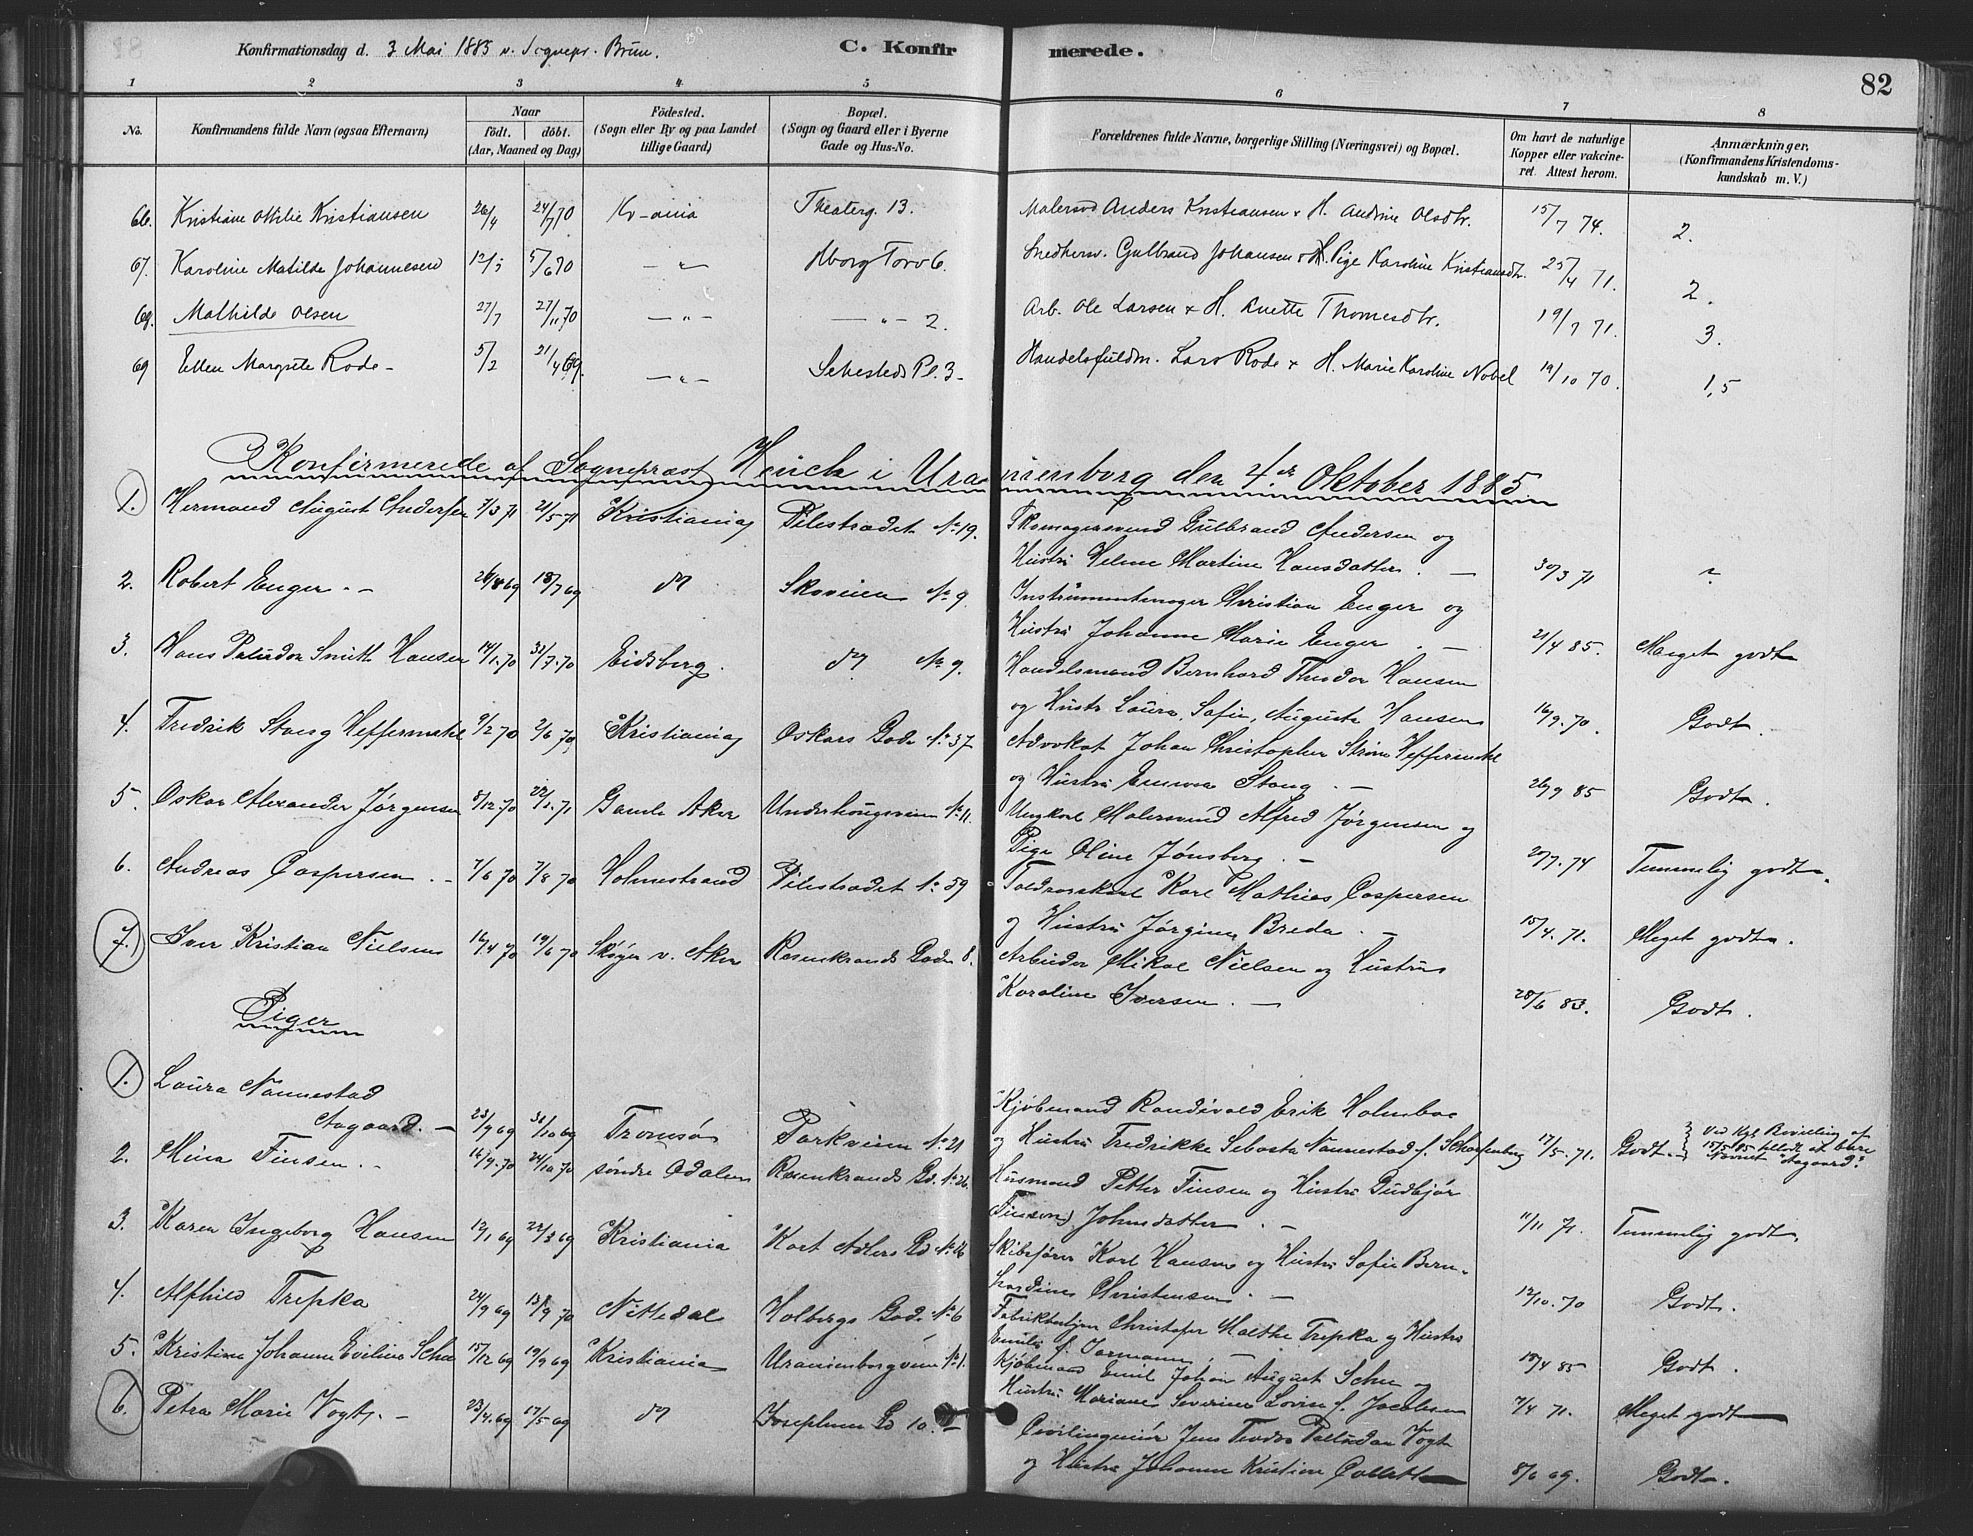 Konfirmationsdag d. 3 Mai 1885 v. Sognepr. Brun.
C. Konfirmerede.
82
1 2 3 4 5 6 7 8
No.
Konfirmandens fulde Navn (ogsaa Efternavn)
Naar
födt. döbt.
(Aar, Maaned og Dag)
Födested.
(Sogn eller By og paa Landet
tillige Gaard)
Bopæl.
(Sogn og Gaard eller i Byerne
Gade og Hus-No.
Forældrenes fulde Navne, borgerlige Stilling (Næringsvei) og Bopæl.
Om havt de naturlige
Kopper eller vakcine-
ret. Attest herom.
Anmærkninger.
(Konfirmandens Kristendoms-
kundskab m. V.)
66. Kristiane Otilie Kristiansen 26/4 24/7 70 Kr-ania Theaterg. 13. Malersvd Anders Kristiansen & H. Andrine Olsdtr. 15/7 74. 2.
67. Karoline Matilde Johannesen 12/3 5/6 70 — " — Aborg Torv 6. Snedkersv. Gulbrand Johansen & Pige Karoline Kristiansdtr. 25/4 71. 2.
69. Mathilde Olsen 27/7 27/11 70 — " — — " — 2. Arb. Ole Larsen & H. Anette Thomesdtr. 19/7 71. 3.
69 Ellen Margrete Rode — 5/2 21/4 69. — " — Sehesteds Pl. 3 — Handelsfuldm. Lars Rode & H. Marie Karoline Nobel 19/10 70. 1,5
Konfirmerede af Sognepræst Heuch i Uranienborg den 4de Oktober 1885
1. Hermand August Andersen 7/3 71 21/5 71 Kristiania Pilestrædet No 19. Skomagersvend Gulbrand Andersen og
Hustru Helene Martine Hansdatter. — 30/3 71
2. Robert Enger. — 26/8 69 18/7 69 do Skoveien No 9. Instrumentmager Christian Enger og
Hustru Johanne Marie Enger. — 21/4 85. Meget godt
3. Hans Paludan Smith Hansen 14/1. 70 31/7. 70 Eidsberg. do No 9. Handelsmand Bernhard Theodor Hansen
og Hustr Laura Sofie Augusta Hansen 16/9. 70. Godt.
4. Fredrik Stang Heffermehl 9/2 70 2/6 70, Kristiania Oskars Gade No 37 Advokat Johan Christopher Strøm Heffermehl
og Hustru Emma Stang. — 26/9 85 Godt.
5. Oskar Alexander Jørgensen 8/12. 70 22/1. 71 Gamle Aker Underhougsveien No 11. Ungkarl Malersvend Alfred Jørgensen og
Pige Oline Jønsberg. — 20/7. 74 Temmelig godt.
6. Andreas Caspersen. — 7/6 70 7/8 70 Holmestrand Pilestrædet No 59 Toldronskarl Karl Mathias Caspersen
og Hustru Jørgine Breda. — 15/4. 71. Meget godt.
7. Iver Kristian Nielsen 16/4 70 19/6 70 Skøyen v. Aker Rosenkrands Gade 8. Arbeider Mikal Nielsen og Hustru
Karoline Iversen. — 28/6 83. Godt.
Piger
1. Laura Nannestad
Aagaard. — 23/9 69 31/10 69 Tromsø Parkveien No 21 Kjøbmand Randivald Erik Holmboe
og Hustru Fredrikke Sebasta Nannestad f. Scharfenberg 17/5. 71. Godt. — Ved Kgl. Bevilling af
15/5 85 tilladt at bære
Navnet "Aagaard".
2. Mina Finsen. — 16/9. 70 24/10. 70 søndre Odalen Rosenkrands Gd. No 26. Husmand Petter Finsen og Hustru Gudbjør
Johnsdatter. — 11/11 71. Temmelig godt.
3. Karen Ingeborg Hansen 12/1 69 22/3 69 Kristiania Kort Adlers Gd No 26 Skibsfører Karl Hansen og Hustru Sofie Bern-
hardine Christensen. — 12/10. 70 Godt.
4. Alfhild Trepka 24/9 69 13/9 70 Nittedal Holbergs Gade No 6 Christofer Malthe Trepka og Hustru
Emilie f. — 15/4 85 Godt.
5. Kristine Johanne Eviline Schu 15/12 69 19/9 69 Kristiania Uranienborgveien No 1. Kjøbmand Emil Johan August Schu og
Hustru Mariane Severine Lovise f. Jacobsen 7/4 71. Meget godt
6. Petra Marie Vogt. — 23/4. 69 17/5 69 do Josephines Gd 10. — Civilingeniør Jens Theodor Paludan Vogt
og Hustru Johanne Kristine Collett 8/6 69. Godt.